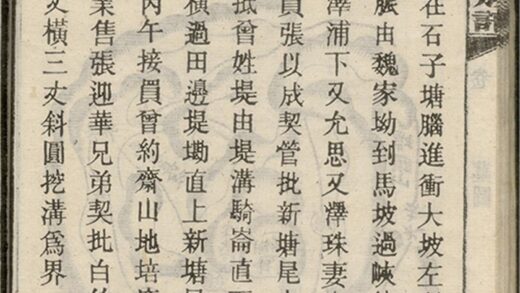 在石子塘腦進衝大坡左
脈由魏家坳到馬坡過峽
澤浦下又允思又澤珠妻
員張以成契管批新塘尾
抵曾姓堤由堤溝騎崙直
橫過田邊堤墈直上新塘
丙午接員曾約齋山地培
業售張迎華兄弟契批白
丈橫三丈斜圓挖溝爲界